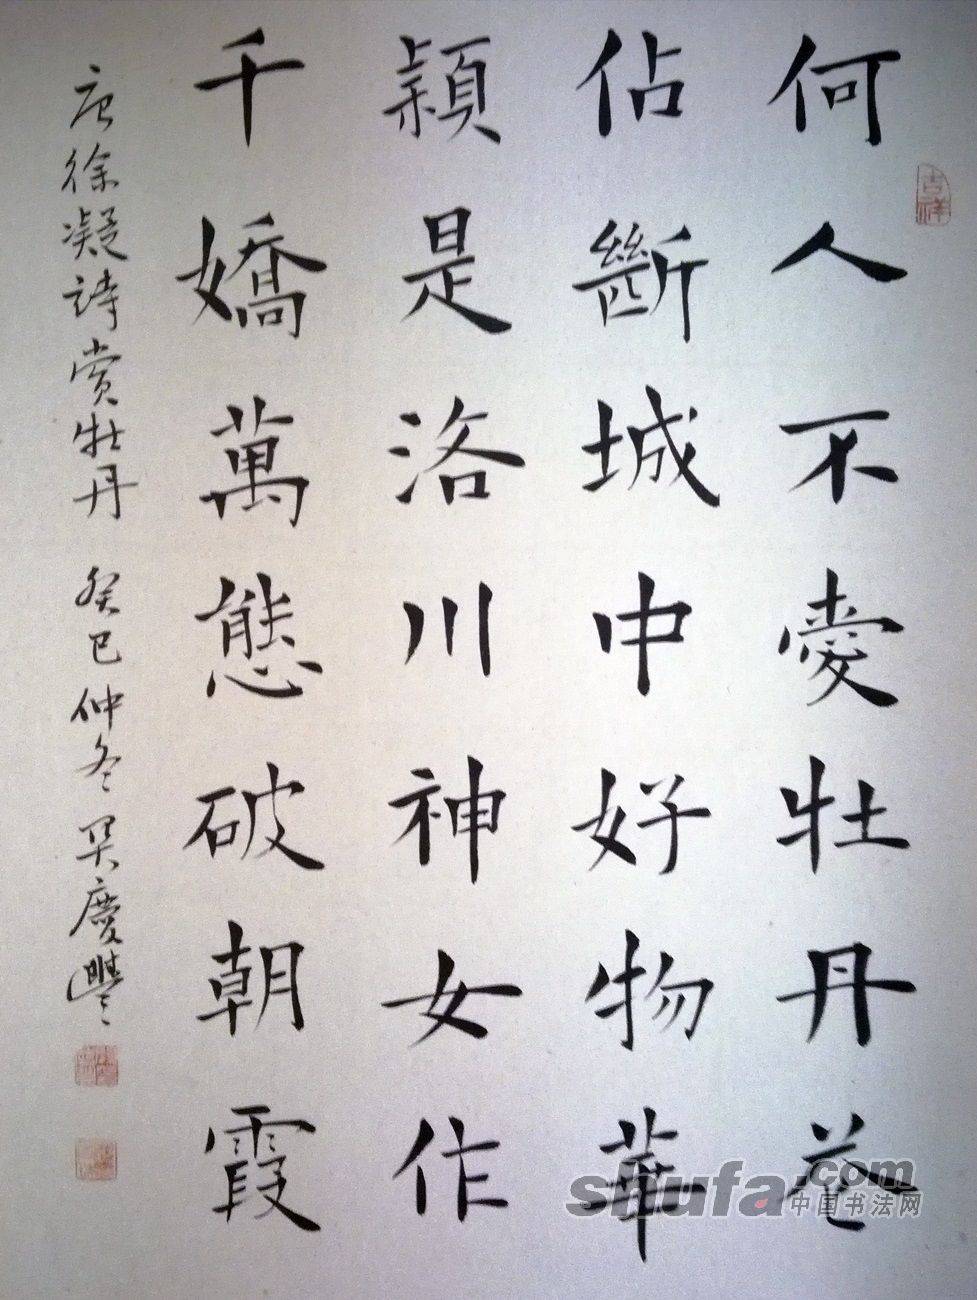 何人不愛牡丹花
佔斷城中好物華
穎是洛川神女作
千嬌萬態破朝霞
唐徐凝詩賞牡丹 癸巳仲冬 吴慶豐
吉祥
shufa.com
中国书法网